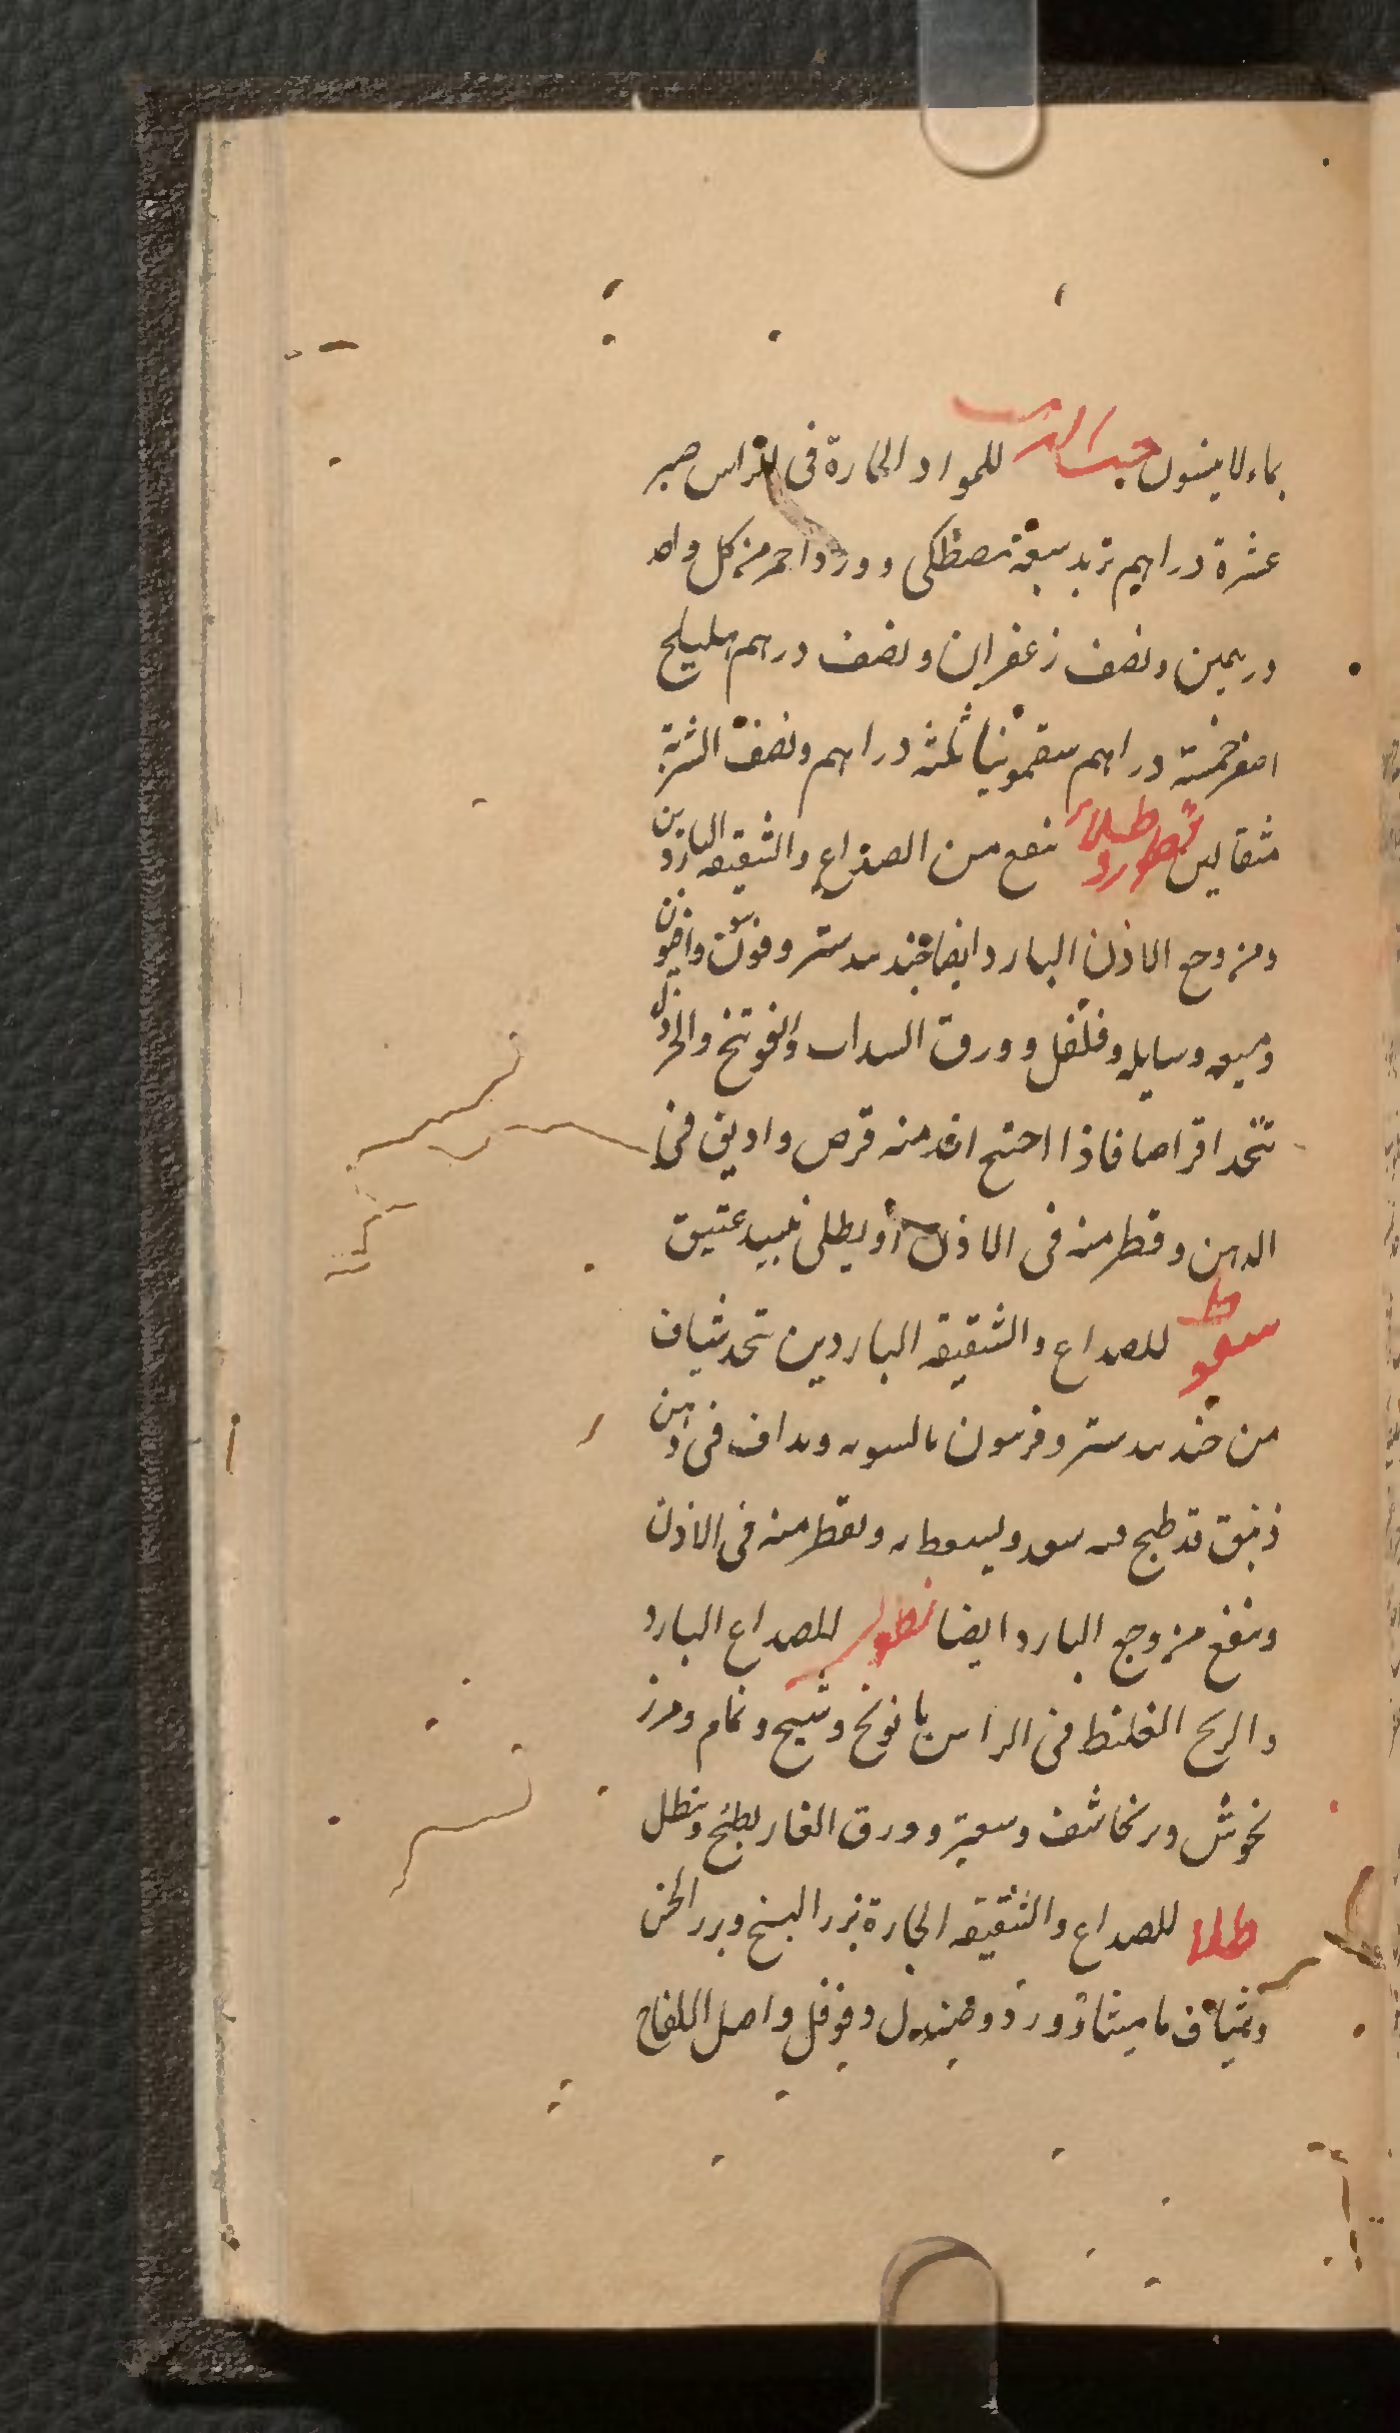 بماء لاينسون حب للمواد الحارة فى الراس صبر
عشرة دراهم تربد سبعة مصطكى وورد احمر من كل واحد
درهمين ونصف زعفران ونصف درهم اهليلج
اصفر خمسة دراهم سقمونيا ثلثه دراهم ونصف الشربة
مثقالين طلاء ينفع من الصداع والشقيقه الباردين
ومن وجع الاذن البارد ايضا جندبيدستر وافيون
وميعه وسايله وفلفل وورق السداب والفوتنج والخردل
تتخذ اقراصا فاذا احتيج اخذ منه قرص واديف فى
الدهن وقطر منه فى الاذن أو يطلى نبيد عتيق
سعوط للصداع والشقيقه الباردين تتحد شياف
من جندبيدستر وفربيون بالسويه ويداف فى دهن
زنبق قد طبخ فيه سعد ويسعط به ويقطر منه فى الاذن
وينفع من وجع البارد ايضا نطول للصداع البارد
والريح الغليظ فى الراس بابونج وشيح ونمام ومرز
نجوش وبرنجاشف وسعتر وورق الغار يطبخ وينطل
طلا للصداع والشقيقه الحارة بزر البنج وبزر الخس
وشياف ماميثا وورد وصندل وفوفل واصل اللفاح